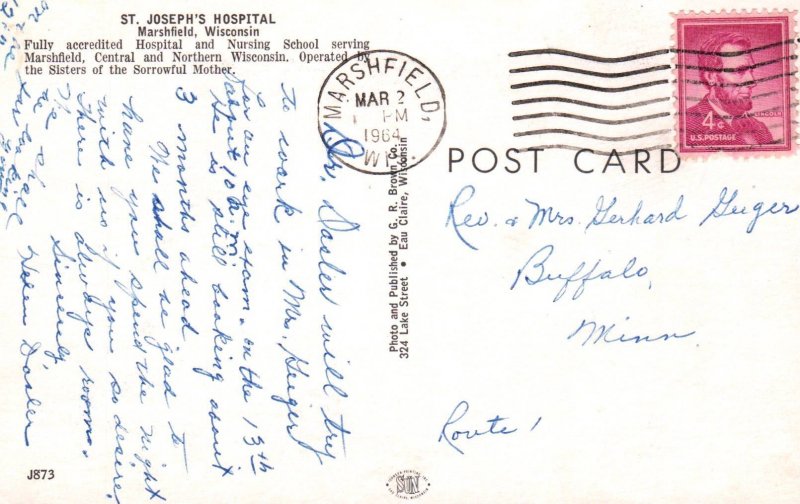 ST. JOSEPH'S HOSPITAL
Marshfield, Wisconsin
Fully accredited Hospital and Nursing School serving
Marshfield, Central and Northern Wisconsin. Operated by
the Sisters of the Sorrowful Mother.
MARSHFIELD,
MAR 2
PM
1964
WIS.
4¢
LINCOLN
U.S. POSTAGE
POST CARD
Rev. & Mrs. Gerhard Geiger
Buffalo,
Minn.
Route 1
Photo and Published by G. R. Brown Co.
324 Lake Street • Eau Claire, Wisconsin
Dr. Dasler will try
to work in Mrs. Geiger
for an eye exam. on the 13th
about 10 a.m.
He is still booking about
3 months ahead.
We shall be glad to
have you spend the night
with us if you so desire.
There is always room.
Sincerely,
Helen Dasler
J873
SUN